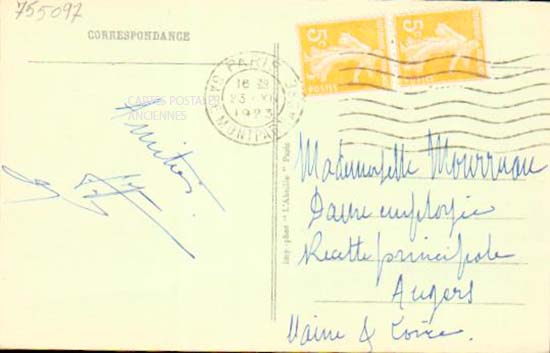 755097
CORRESPONDANCE
5c
5c
POSTES
PARIS
GARE MONTPARNASSE
16
23 XI
1923
CARTES POSTALES
ANCIENNES
Amitiés
imp.-phot "L'Abeille" Paris
Mademoiselle
Dame employée
Recette principale
Angers
Maine & Loire.